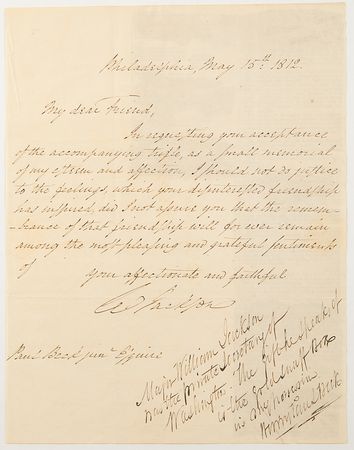 Philadelphia, May 15th. 1812.
My dear Friend,
In requesting your acceptance
of the accompanying trifle, as a small memorial
of my esteem and affection, I should not do justice
to the feelings, which your disinterested friendship
has inspired, did I not assure you that the remem-
brance of that friendship will for ever remain
among the most pleasing and grateful sentiments
of
your affectionate and faithful
W Jackson
Paul Beck junr. Esquire
Major William Jackson
was the private Secretary of
Washington. The gift he speaks of
is the gold snuff Box
in the possession
Paul Beck